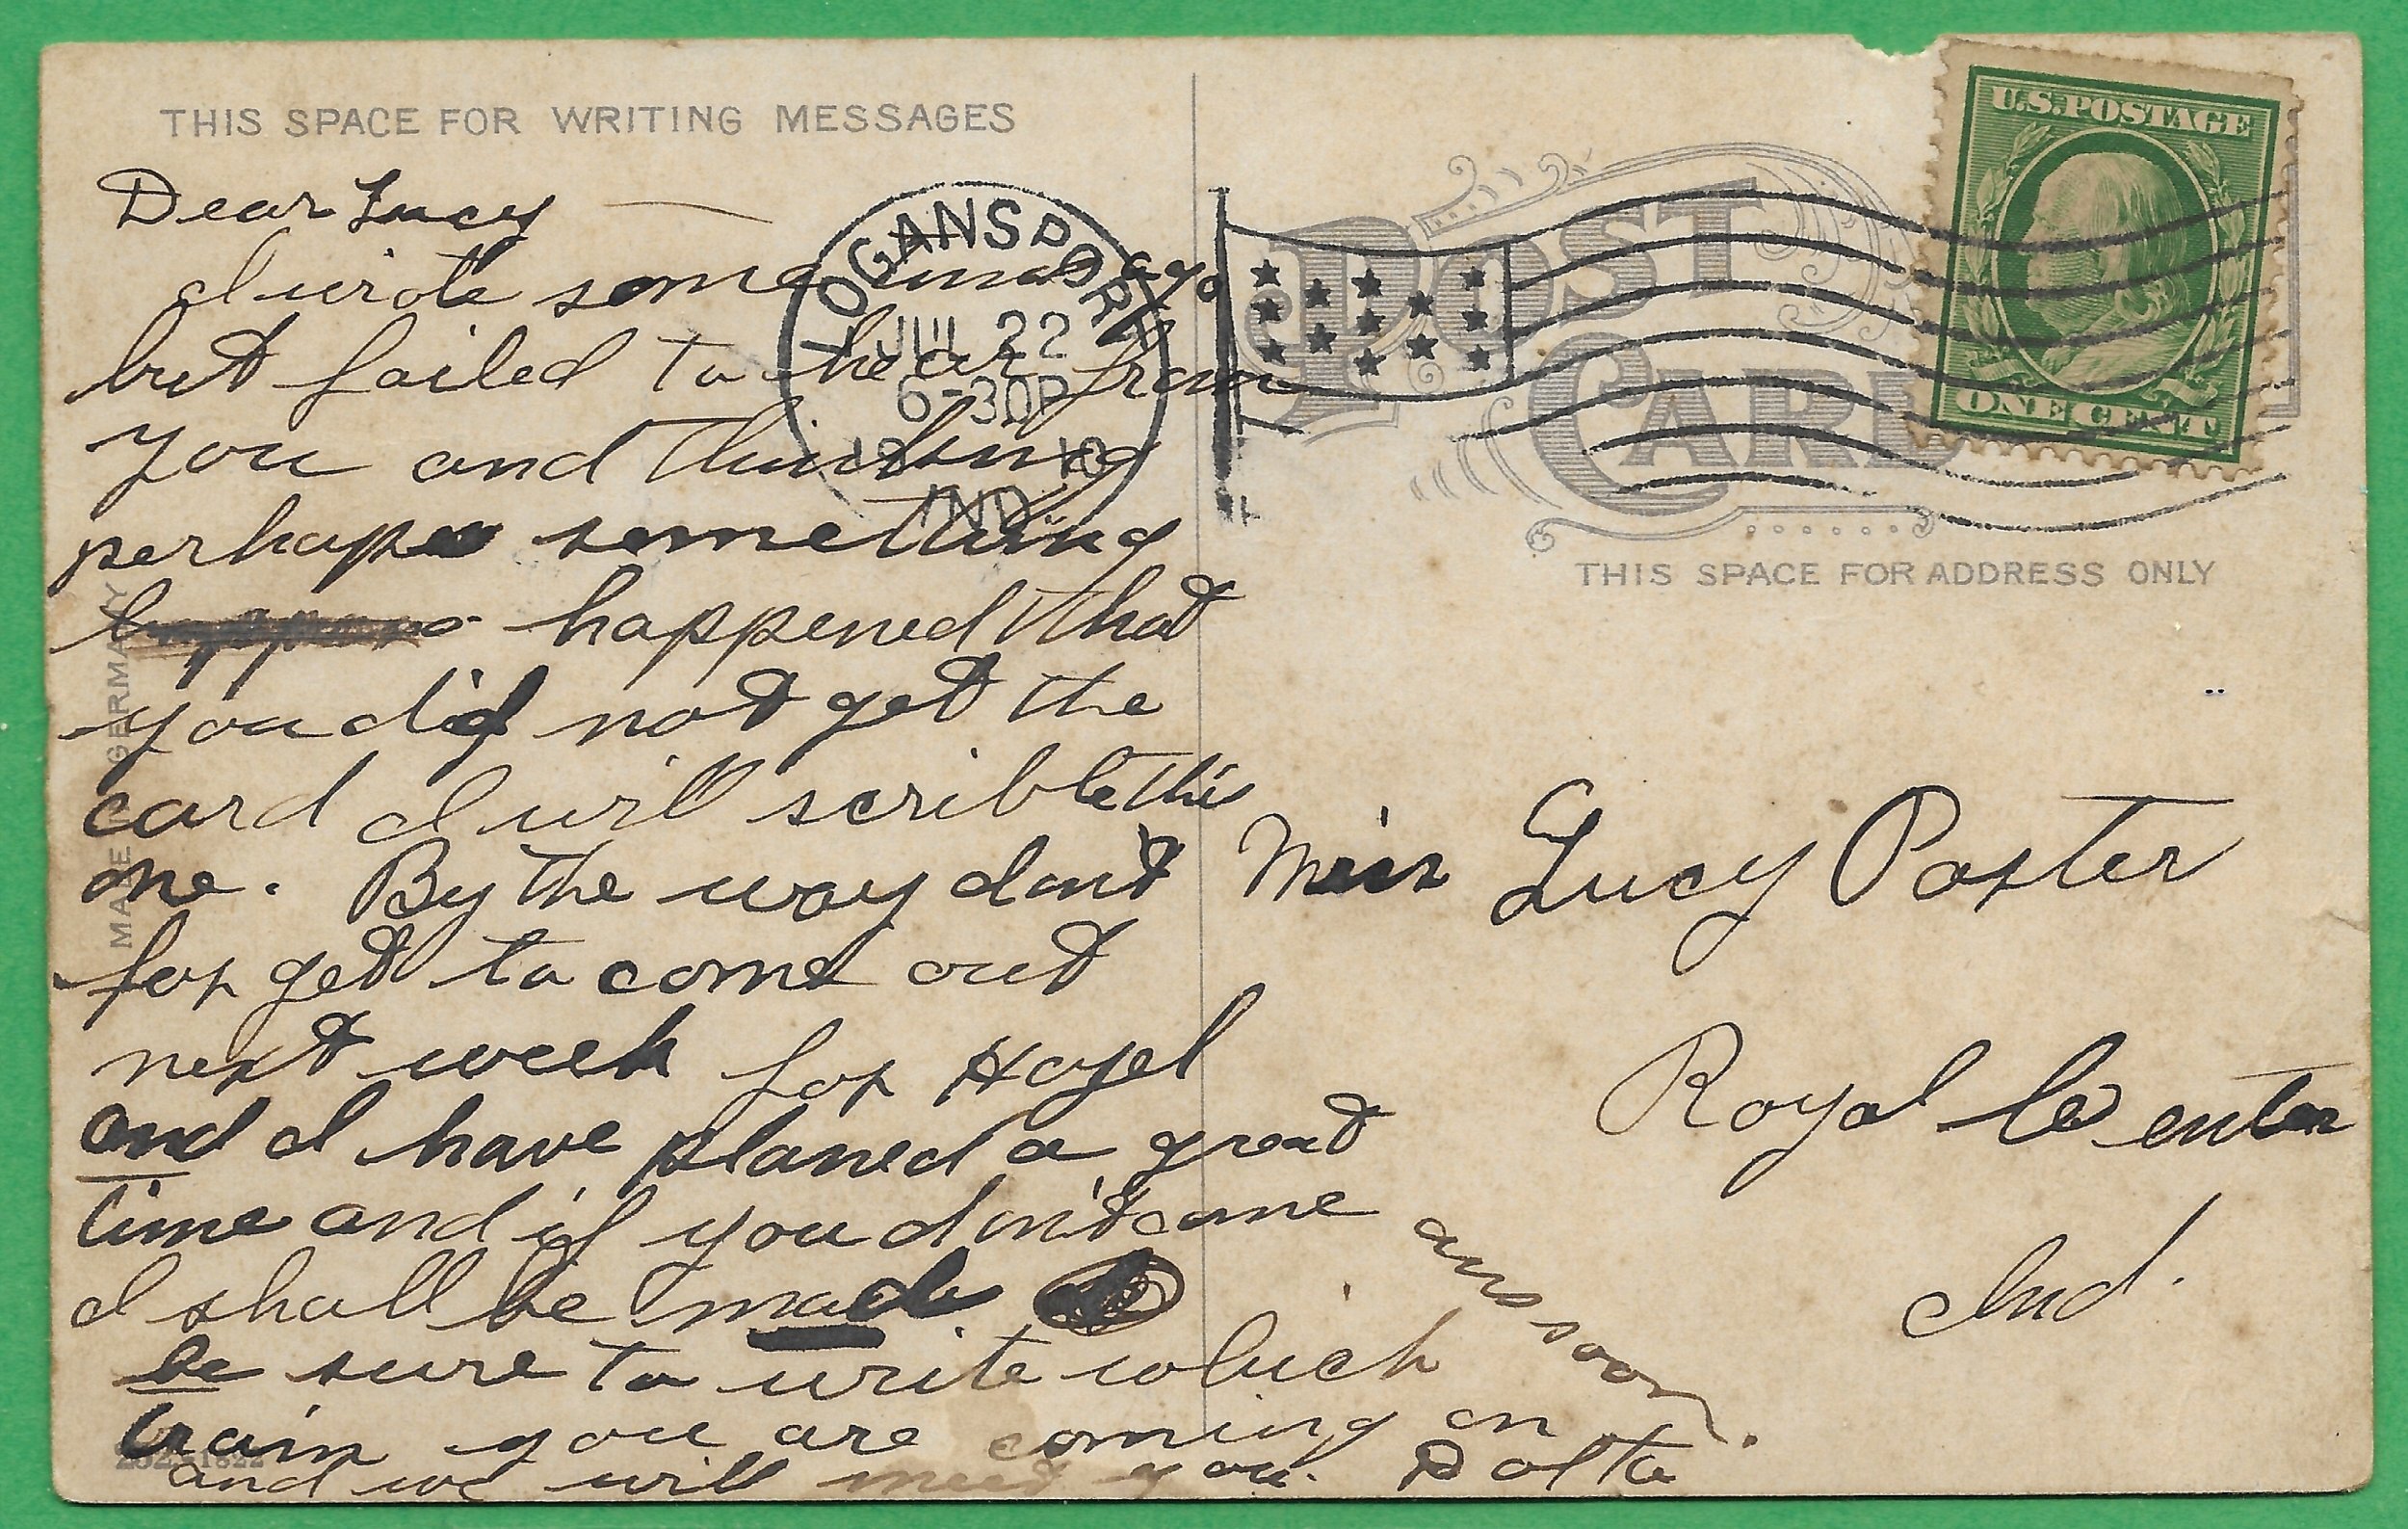 THIS SPACE FOR WRITING MESSAGES
Dear Lucy
I wrote some time ago
but failed to hear from
you and thinking
perhaps something
happened that
you did not get the
card I will scrible this
one. By the way don't
for get to come out
next week for Hazel
and I have planed a great
time and if you don't come
I shall be mad
be sure to write which
train you are coming on
and we will meet you.
ans soon.
LOGANSPORT
JUL 22
6-30P
1910
IND.
POST
CARD
U.S. POSTAGE
ONE CENT
THIS SPACE FOR ADDRESS ONLY
Miss Lucy Porter
Royal Center
Ind.
MADE IN GERMANY